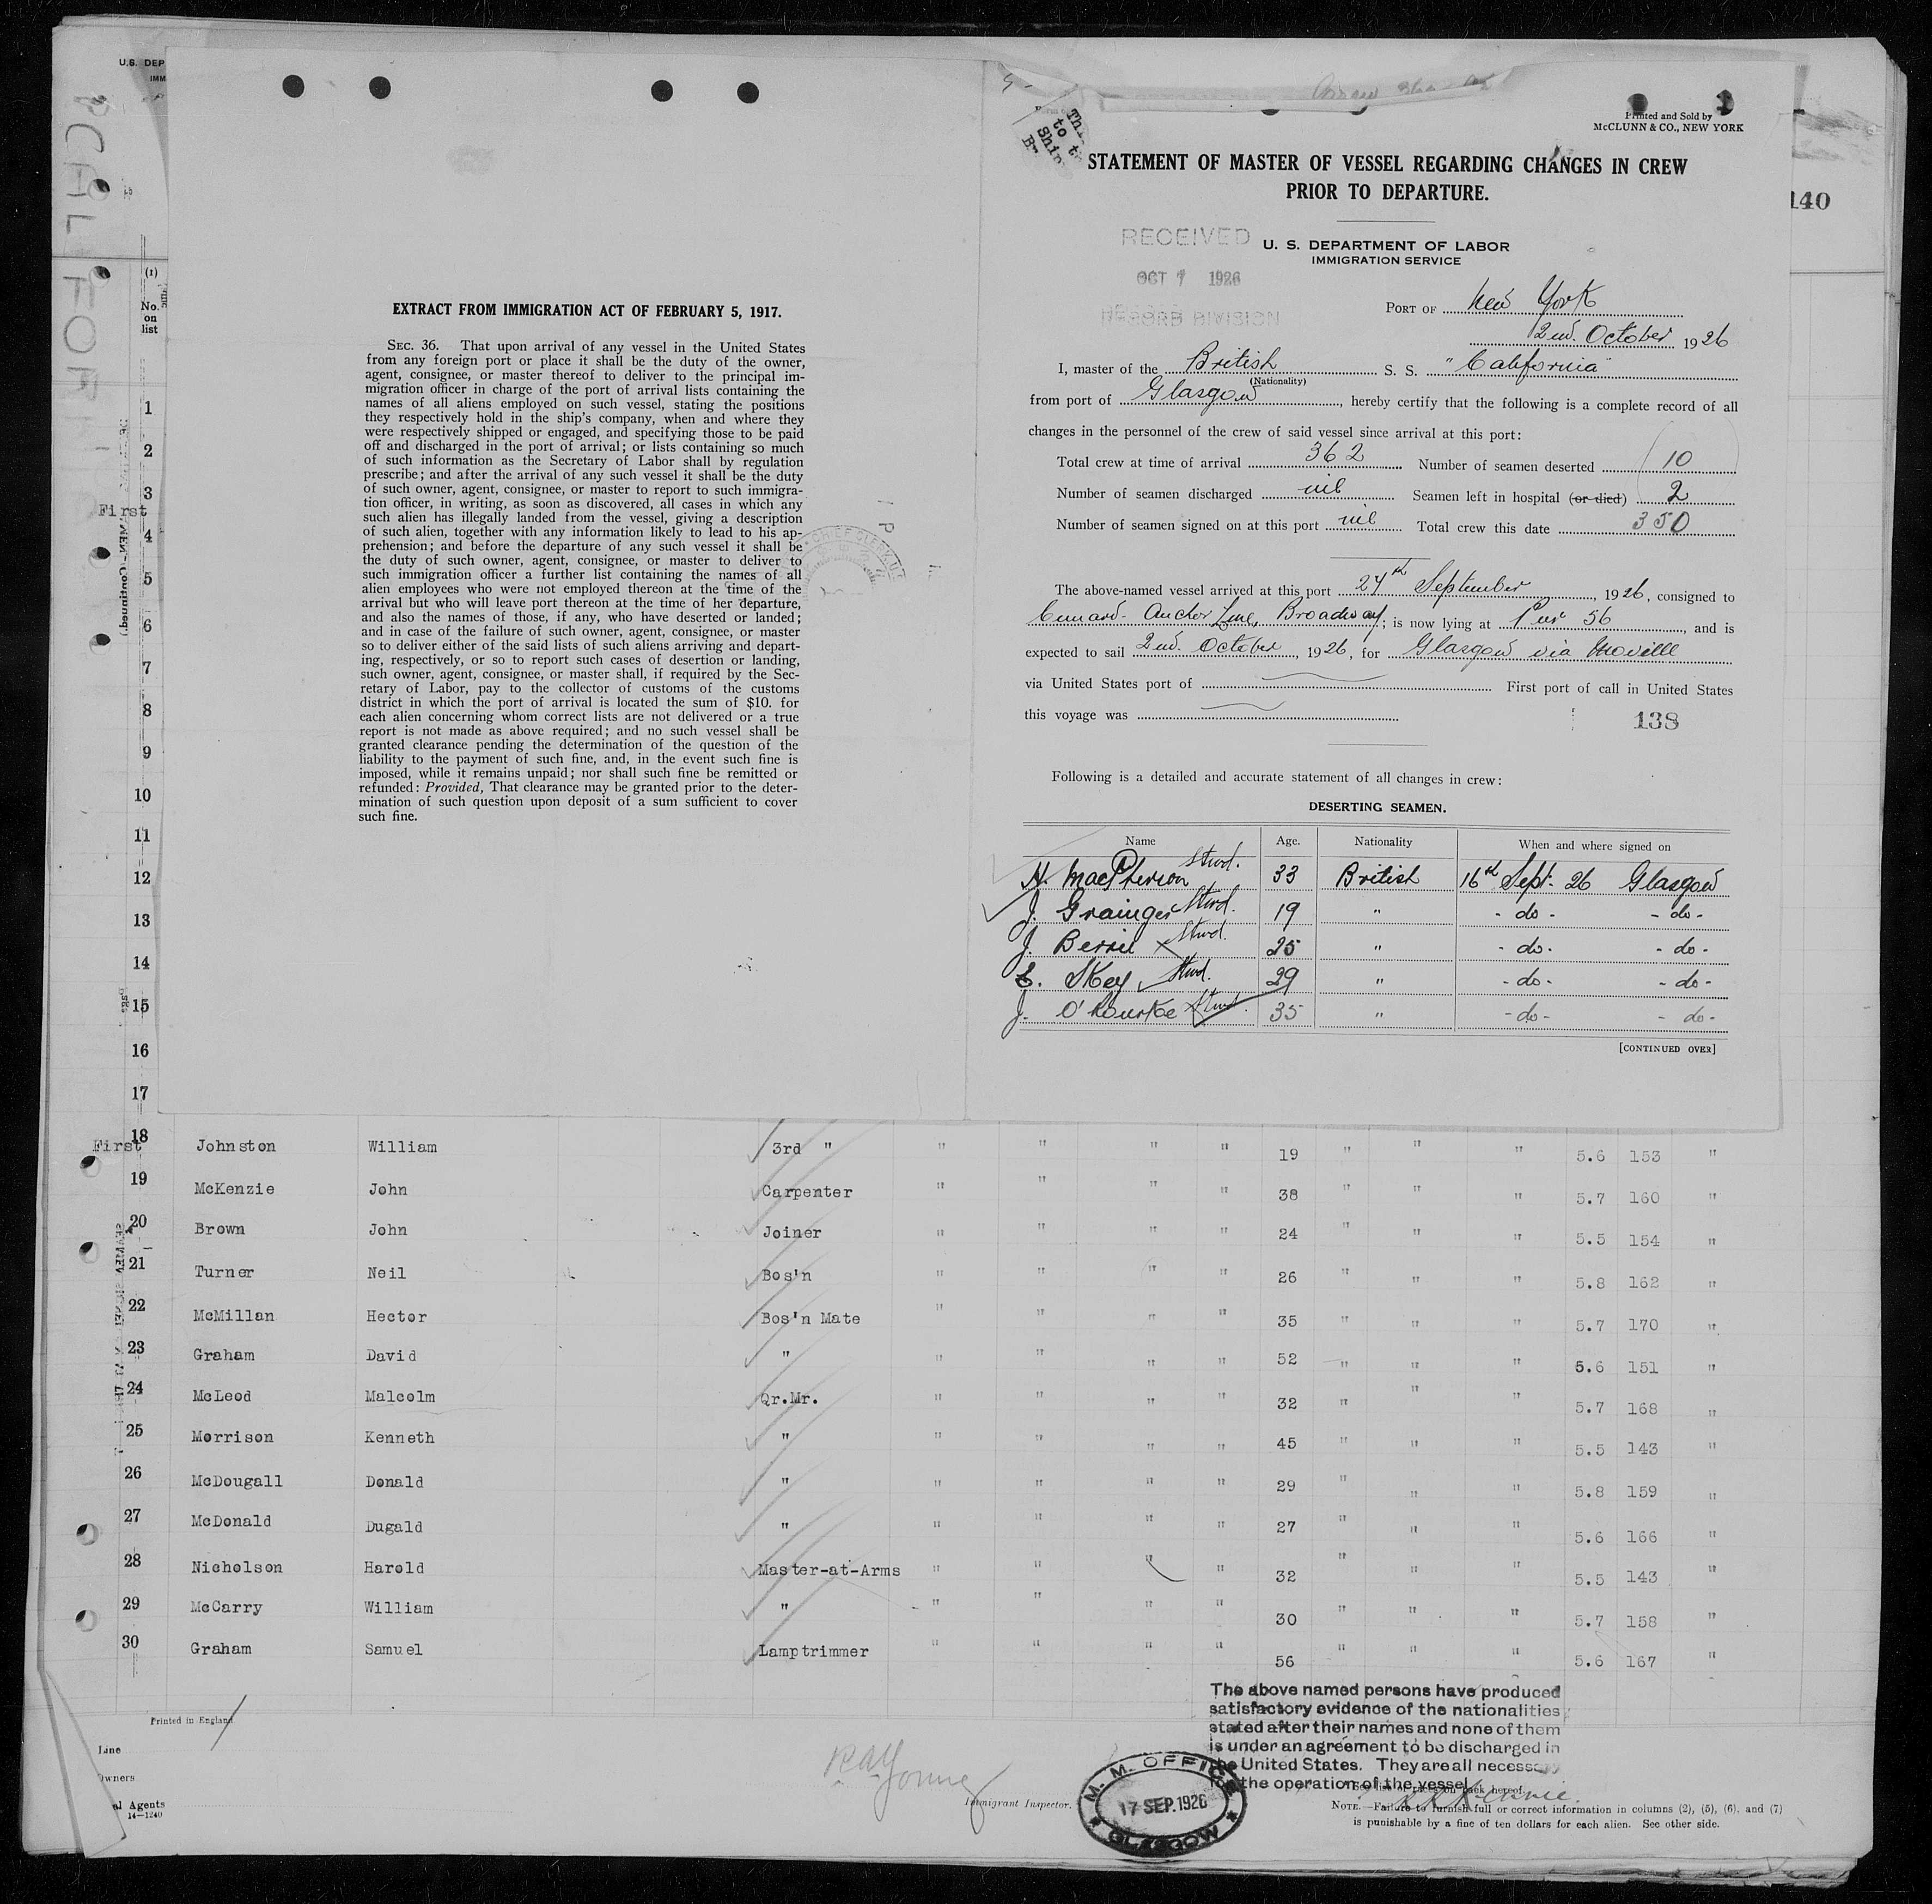 U.S. DEP
IMM
CALIFOR
(1)
No.
on
list
EXTRACT FROM IMMIGRATION ACT OF FEBRUARY 5, 1917.
SEC. 36. That upon arrival of any vessel in the United States
from any foreign port or place it shall be the duty of the owner,
agent, consignee, or master thereof to deliver to the principal im-
migration officer in charge of the port of arrival lists containing the
names of all aliens employed on such vessel, stating the positions
they respectively hold in the ship's company, when and where they
were respectively shipped or engaged, and specifying those to be paid
off and discharged in the port of arrival; or lists containing so much
of such information as the Secretary of Labor shall by regulation
prescribe; and after the arrival of any such vessel it shall be the duty
of such owner, agent, consignee, or master to report to such immigra-
tion officer, in writing, as soon as discovered, all cases in which any
such alien has illegally landed from the vessel, giving a description
of such alien, together with any information likely to lead to his ap-
prehension; and before the departure of any such vessel it shall be
the duty of such owner, agent, consignee, or master to deliver to
such immigration officer a further list containing the names of all
alien employees who were not employed thereon at the time of the
arrival but who will leave port thereon at the time of her departure,
and also the names of those, if any, who have deserted or landed;
and in case of the failure of such owner, agent, consignee, or master
so to deliver either of the said lists of such aliens arriving and depart-
ing, respectively, or so to report such cases of desertion or landing,
such owner, agent, consignee, or master shall, if required by the Sec-
retary of Labor, pay to the collector of customs of the customs
district in which the port of arrival is located the sum of $10. for
each alien concerning whom correct lists are not delivered or a true
report is not made as above required; and no such vessel shall be
granted clearance pending the determination of the question of the
liability to the payment of such fine, and, in the event such fine is
imposed, while it remains unpaid; nor shall such fine be remitted or
refunded: Provided, That clearance may be granted prior to the deter-
mination of such question upon deposit of a sum sufficient to cover
such fine.
CHIEF CLERK
Printed and Sold by
McCLUNN & CO., NEW YORK
STATEMENT OF MASTER OF VESSEL REGARDING CHANGES IN CREW
PRIOR TO DEPARTURE.
140
RECEIVED
OCT 7 1926
RECORD DIVISION
U. S. DEPARTMENT OF LABOR
IMMIGRATION SERVICE
PORT OF New York
2nd. October 1926
I, master of the British S. S. "California"
(Nationality)
from port of Glasgow, hereby certify that the following is a complete record of all
changes in the personnel of the crew of said vessel since arrival at this port:
Total crew at time of arrival 362 Number of seamen deserted 10
Number of seamen discharged nil Seamen left in hospital (or died) 2
Number of seamen signed on at this port nil Total crew this date 350
The above-named vessel arrived at this port 27th September, 1926, consigned to
Cunard-Anchor Line, Broadway; is now lying at Pier 56, and is
expected to sail 2nd. October, 1926, for Glasgow via Moville
via United States port of First port of call in United States
this voyage was
138
Following is a detailed and accurate statement of all changes in crew:
DESERTING SEAMEN.
Name Age. Nationality When and where signed on
H. MacPherson Stwd. 33 British 16th Sept. 26 Glasgow
J. Grainger Stwd. 19 " - do - - do -
J. Berrie Stwd. 25 " - do - - do -
E. Skey Stwd. 29 " - do - - do -
J. O'Rourke Stwd. 35 " - do - - do -
[CONTINUED OVER]
1
2
3
First
4
5
6
7
8
9
10
11
12
13
14
15
16
17
First
18 Johnston William 3rd " " " " " 19 " " " 5.6 153 "
19 McKenzie John Carpenter " " " " 38 " " " 5.7 160 "
20 Brown John Joiner " " " " 24 " " " 5.5 154 "
21 Turner Neil Bos'n " " " " 26 " " " 5.8 162 "
22 McMillan Hector Bos'n Mate " " " " 35 " " " 5.7 170 "
23 Graham David " " " " " 52 " " " 5.6 151 "
24 McLeod Malcolm Qr.Mr. " " " " 32 " " " 5.7 168 "
25 Morrison Kenneth " " " " " 45 " " " 5.5 143 "
26 McDougall Donald " " " " " 29 " " " 5.8 159 "
27 McDonald Dugald " " " " " 27 " " " 5.6 166 "
28 Nicholson Harold Master-at-Arms " " " " 32 " " " 5.5 143 "
29 McCarry William " " " " " 30 " " " 5.7 158 "
30 Graham Samuel Lamptrimmer " " " " 56 " " " 5.6 167 "
The above named persons have produced
satisfactory evidence of the nationalities
stated after their names and none of them
is under an agreement to be discharged in
the United States. They are all necessary
for the operation of the vessel
Printed in England
Line
Owners
al Agents
14—1240
Immigrant Inspector.
M. M. OFFICE
17 SEP. 1926
GLASGOW
NOTE.—Failure to furnish full or correct information in columns (2), (5), (6), and (7)
is punishable by a fine of ten dollars for each alien. See other side.